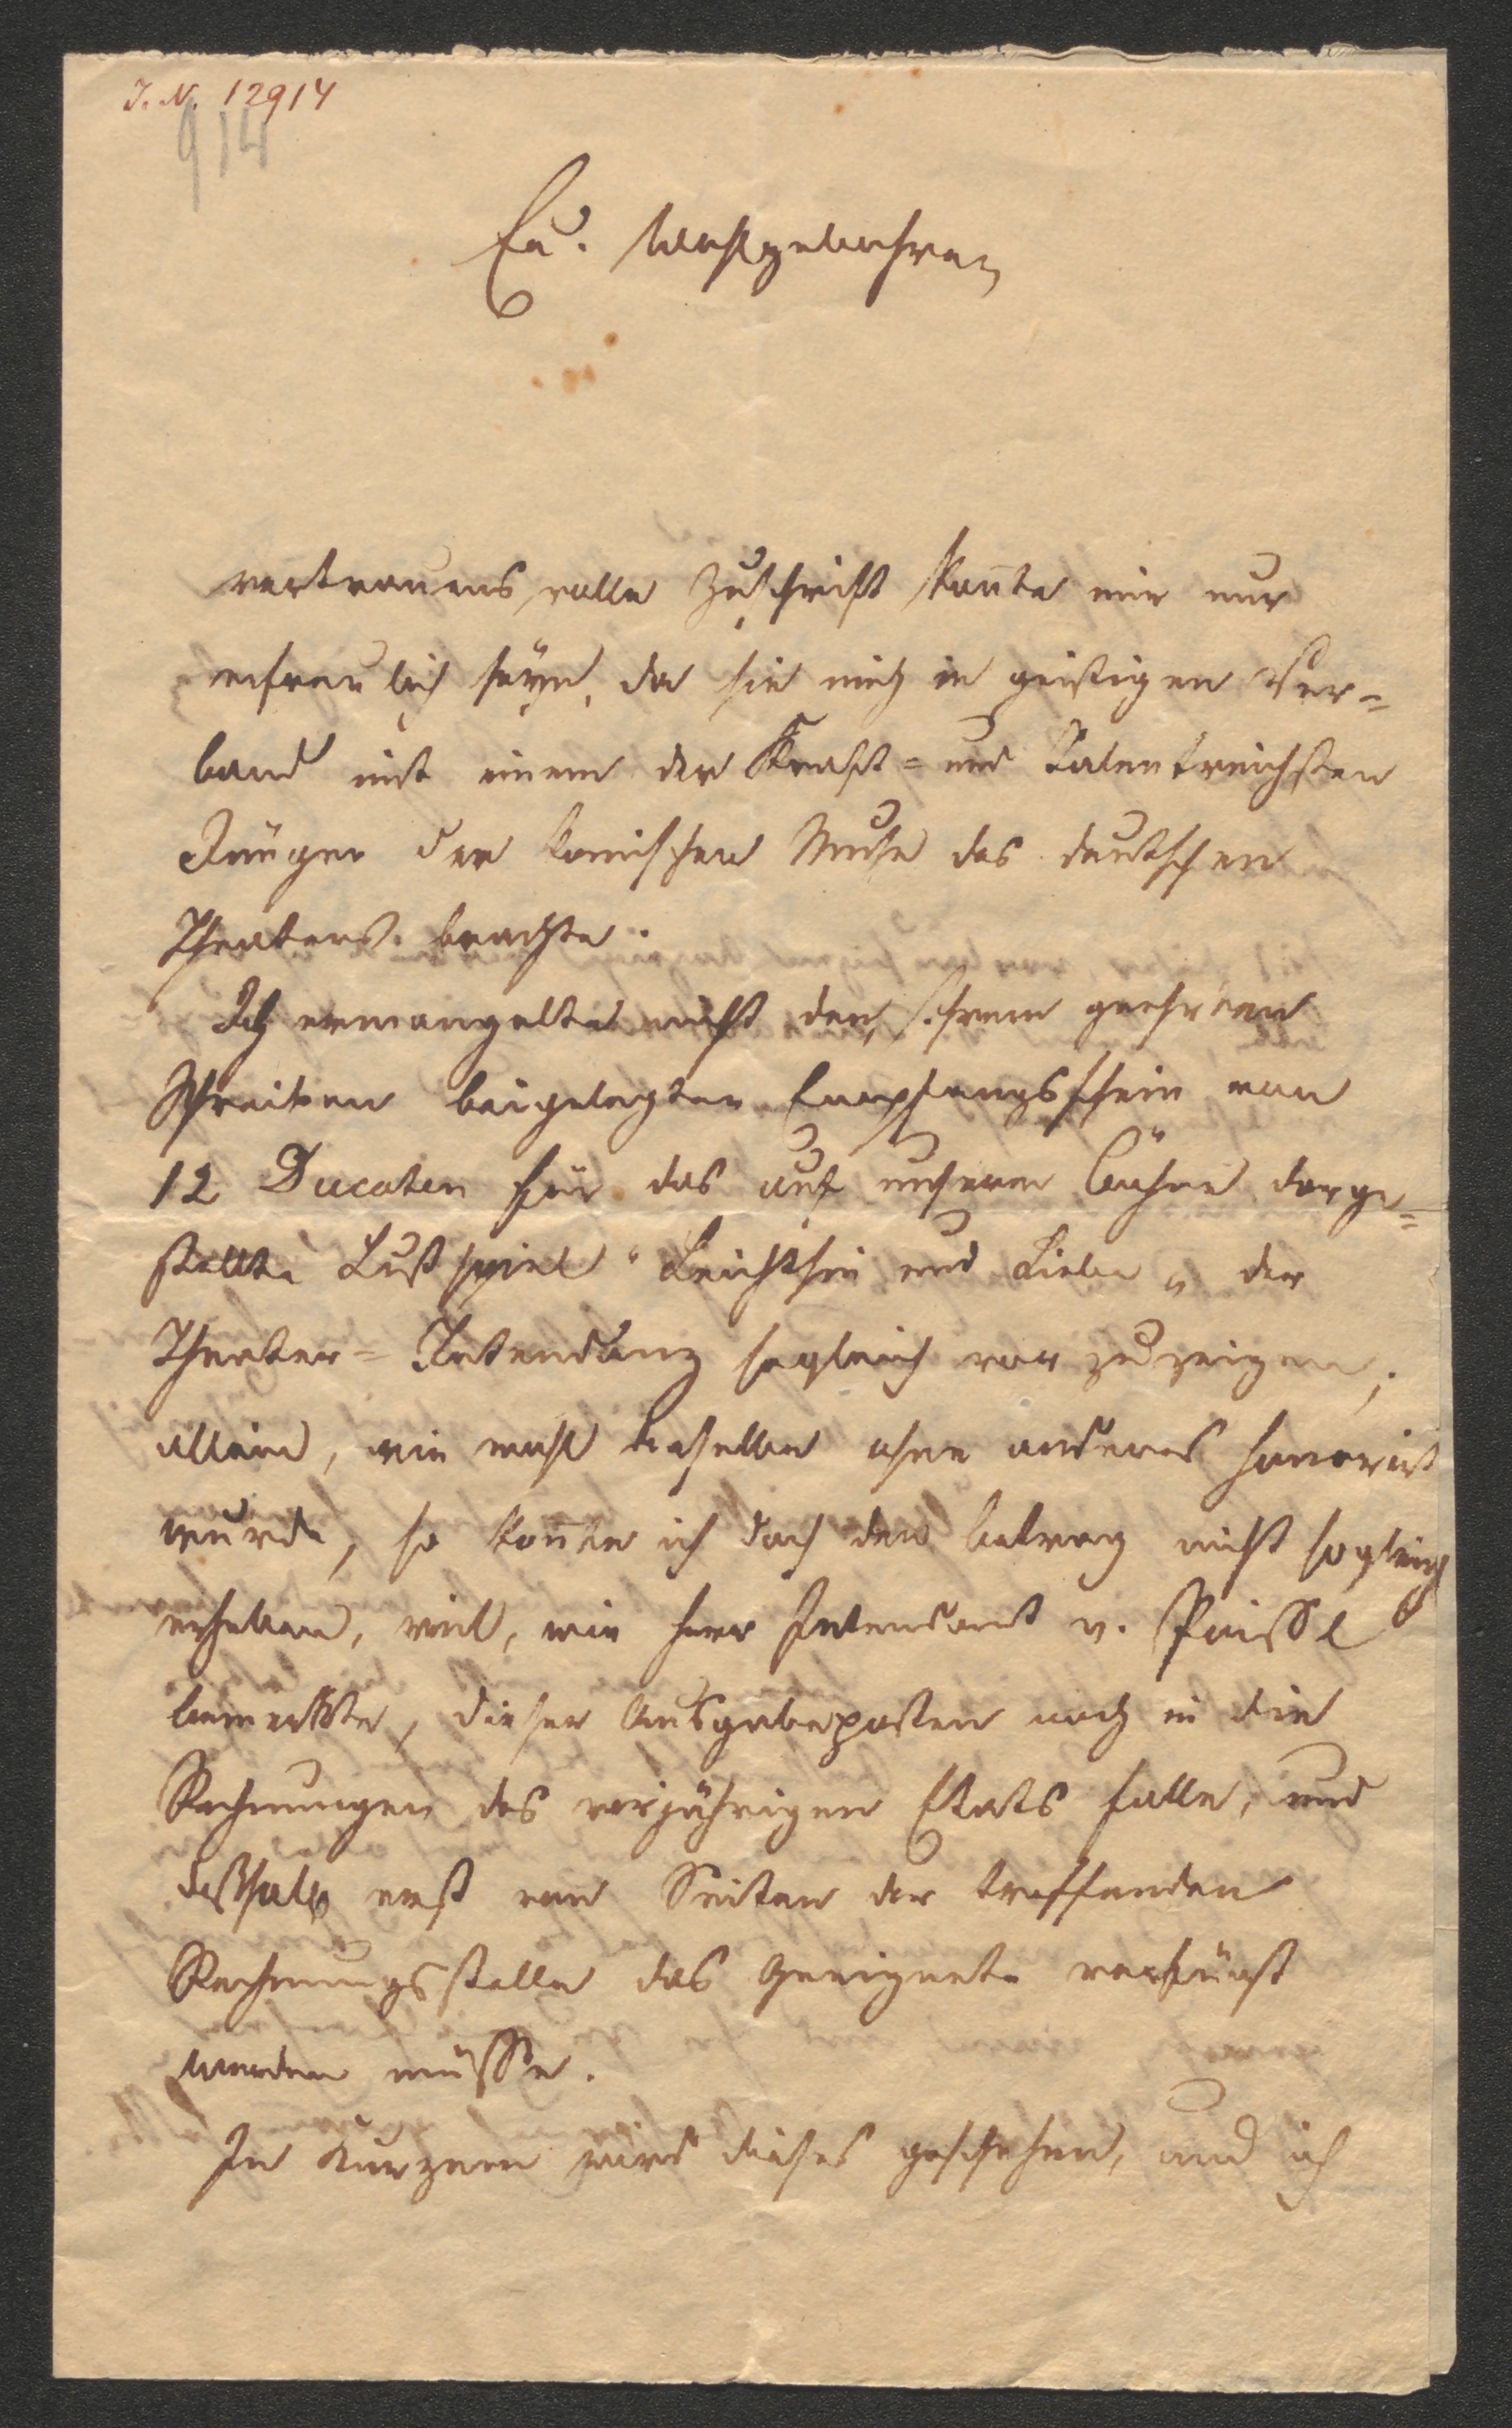 I. N. 12914
914
Eu. Wohlgebohren
vertrauensvolle Zuschrift konnte mir nur
erfreulich seyn, da sie mich in geistigen Ver=
band mit einem der Kraft= und Talentreichsten
Jünger der komischen Muse des deutschen
Theaters brachte.
Ich ermangelte nicht den, Ihrem geehrten
Schreiben beigelegten Empfangsschein von
12 Ducaten für das auf unserer Bühne darge=
stellte Lustspiel "Leichtsin und Liebe" der
Theater=Intendanz sogleich vorzuzeigen;
allein, wie wohl derselbe ohne anderes honorirt
wurde, so konnte ich doch den Betrag nicht sogleich
erheben, weil, wie Herr Intendant v. Poissl
bemerkte, dieser Ausgabeposten noch in die
Rechnungen des vorjährigen Etats falle, und
deßhalb erst von Seiten der treffenden
Rechnungsstelle das Geeignete verfügt
werden müsse.
In Kurzem wird dieses geschehen, und ich